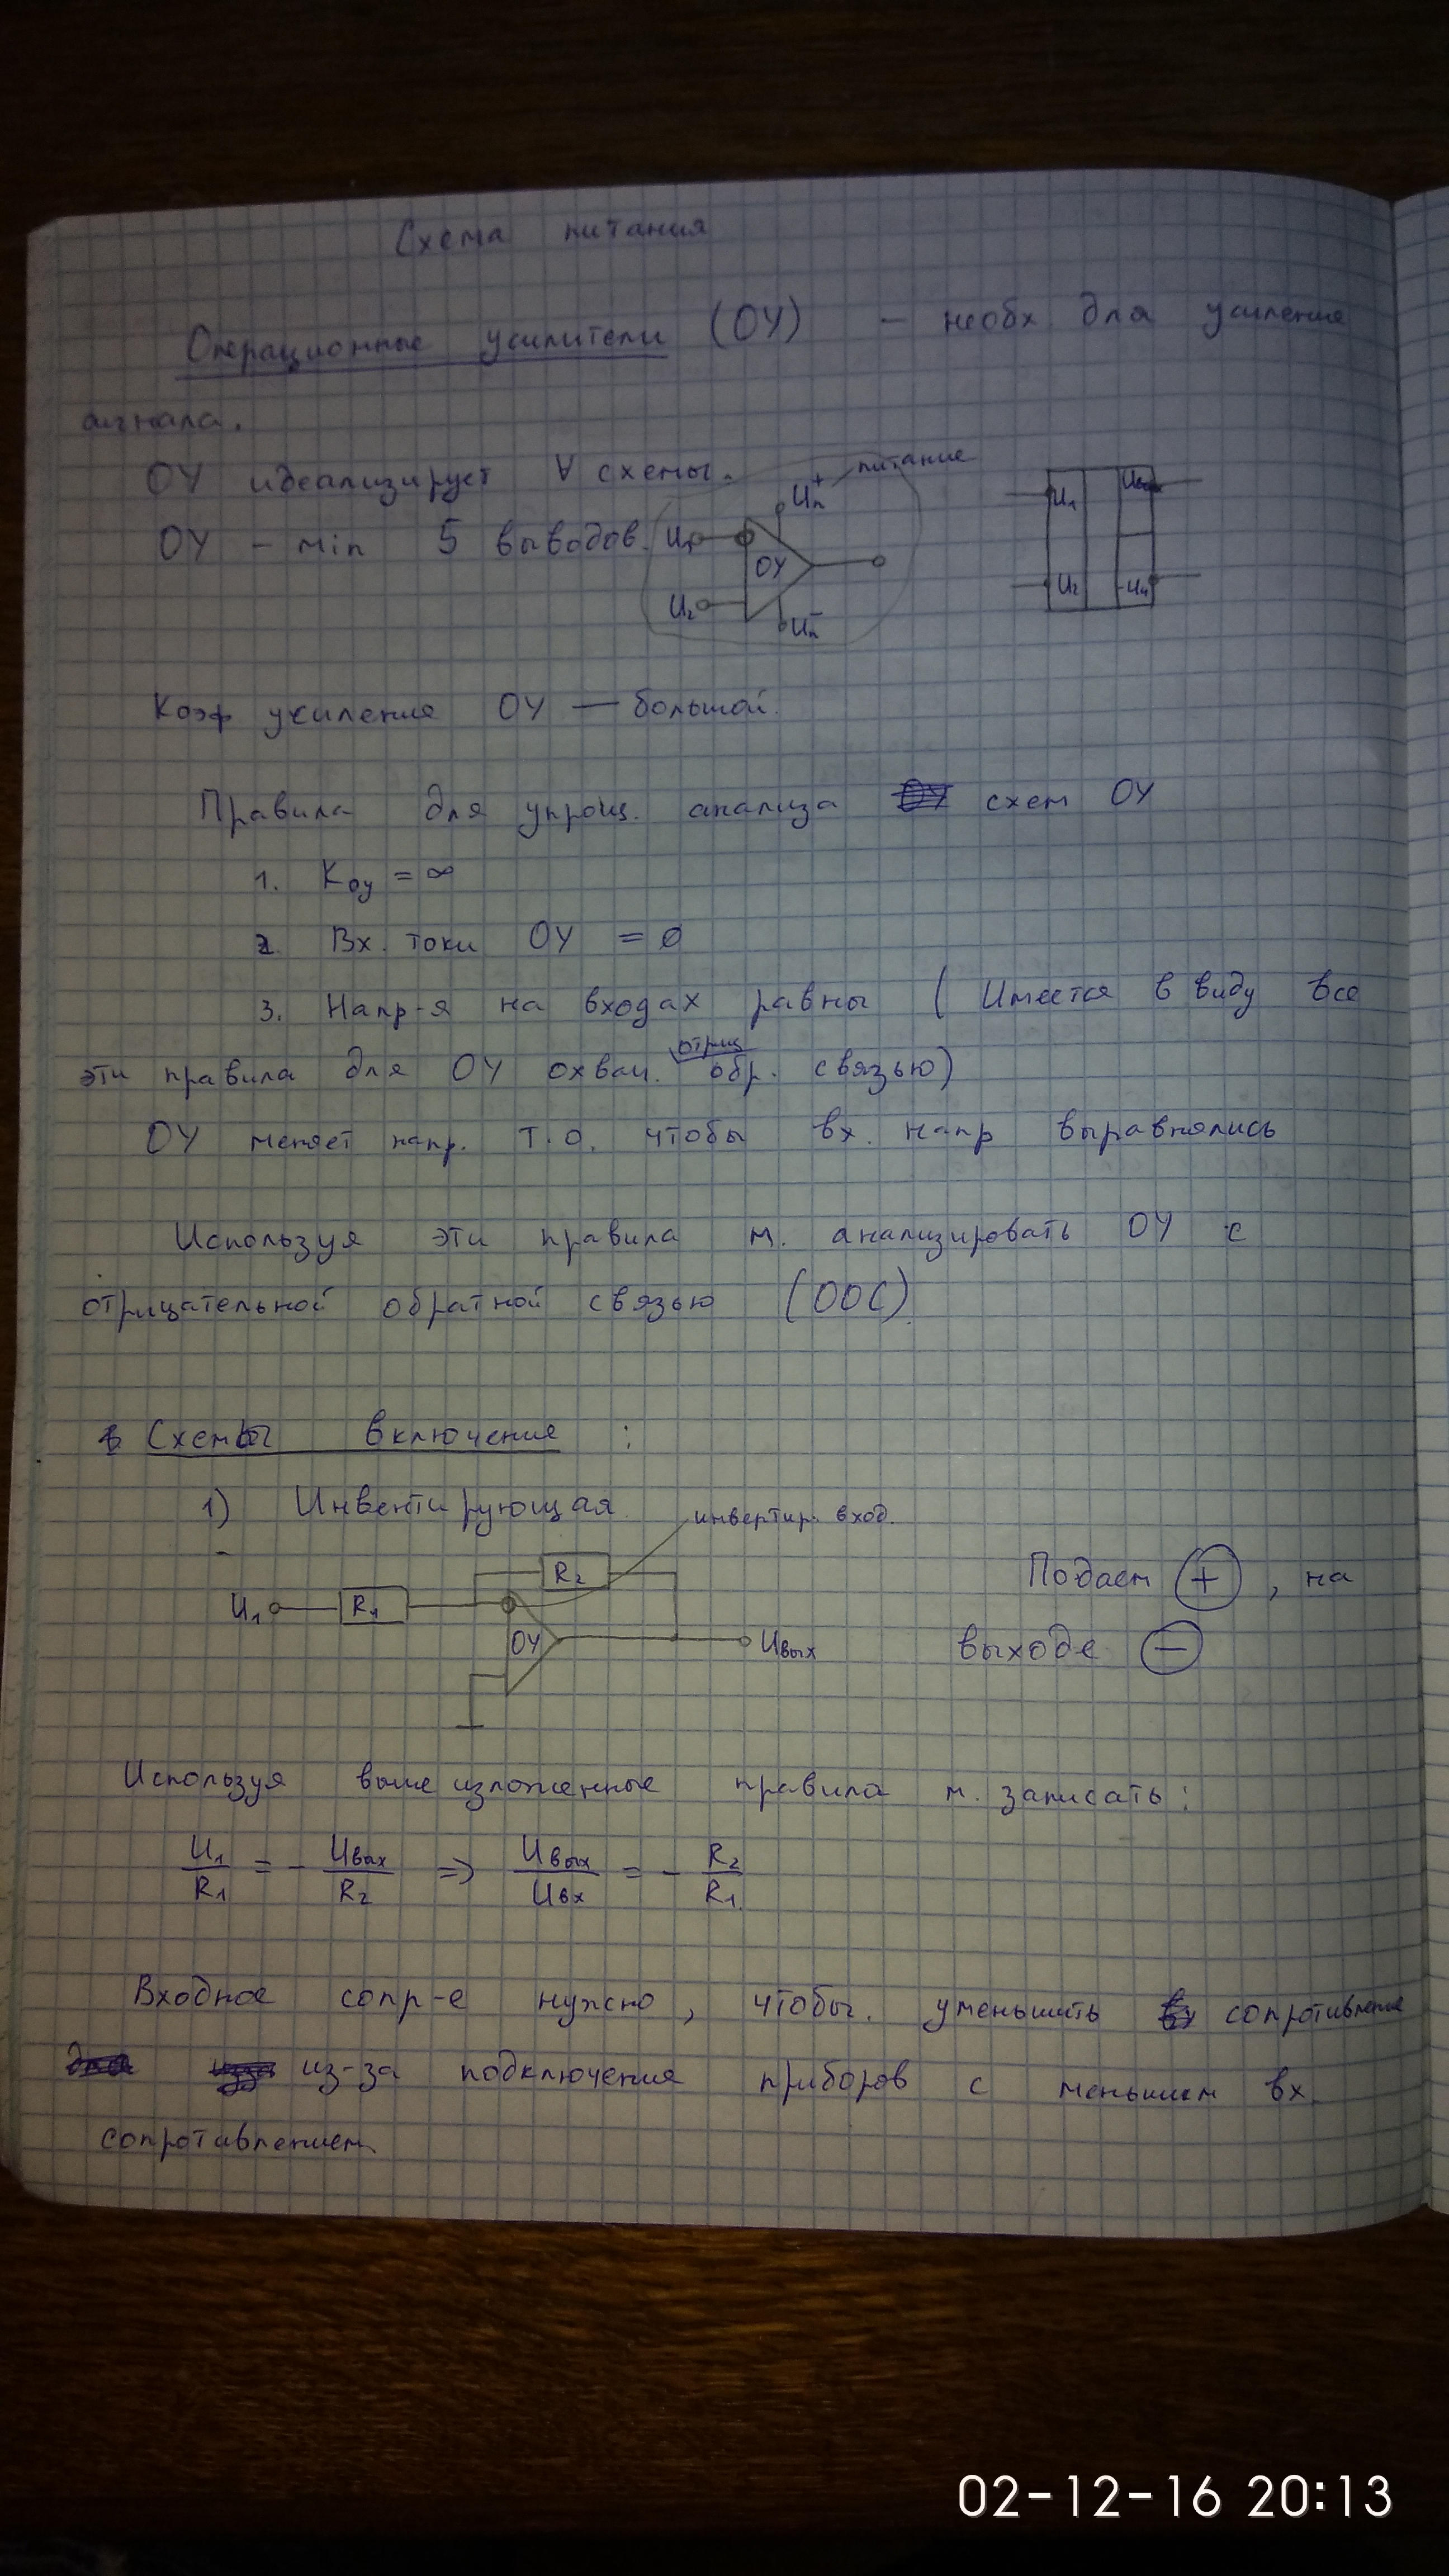 Схема питания
Операционные усилители (ОУ) – необх для усиление
сигнала.
ОУ идеализирует ∀ схемы.
питание
Uп+
U1
Uвых
ОУ – min 5 выводов.
U1
ОУ
U2
Uп-
U2
-Uп
Коэф усиления ОУ — большой.
Правила для упрощ. анализа схем ОУ
1. Kоу = ∞
2. Вх. токи ОУ = 0
3. Напр-я на входах равны ( Имеется в виду все
эти правила для ОУ охвач. отриц обр. связью)
ОУ меняет напр. т.о. чтобы вх. напр выравнялись
Используя эти правила м. анализировать ОУ с
отрицательной обратной связью (ООС).
Схемы включение :
1) Инвентирующая
инвертир. вход.
R2
U1
R1
ОУ
Uвых
Подаем + , на
выходе −
Используя вышеизложенные правила м. записать:
U1/R1 = - Uвых/R2 => Uвых/Uвх = - R2/R1
Входное сопр-е нужно, чтобы. уменьшить сопротивление
из-за подключения приборов с меньшим вх.
сопротивлением.
02-12-16 20:13